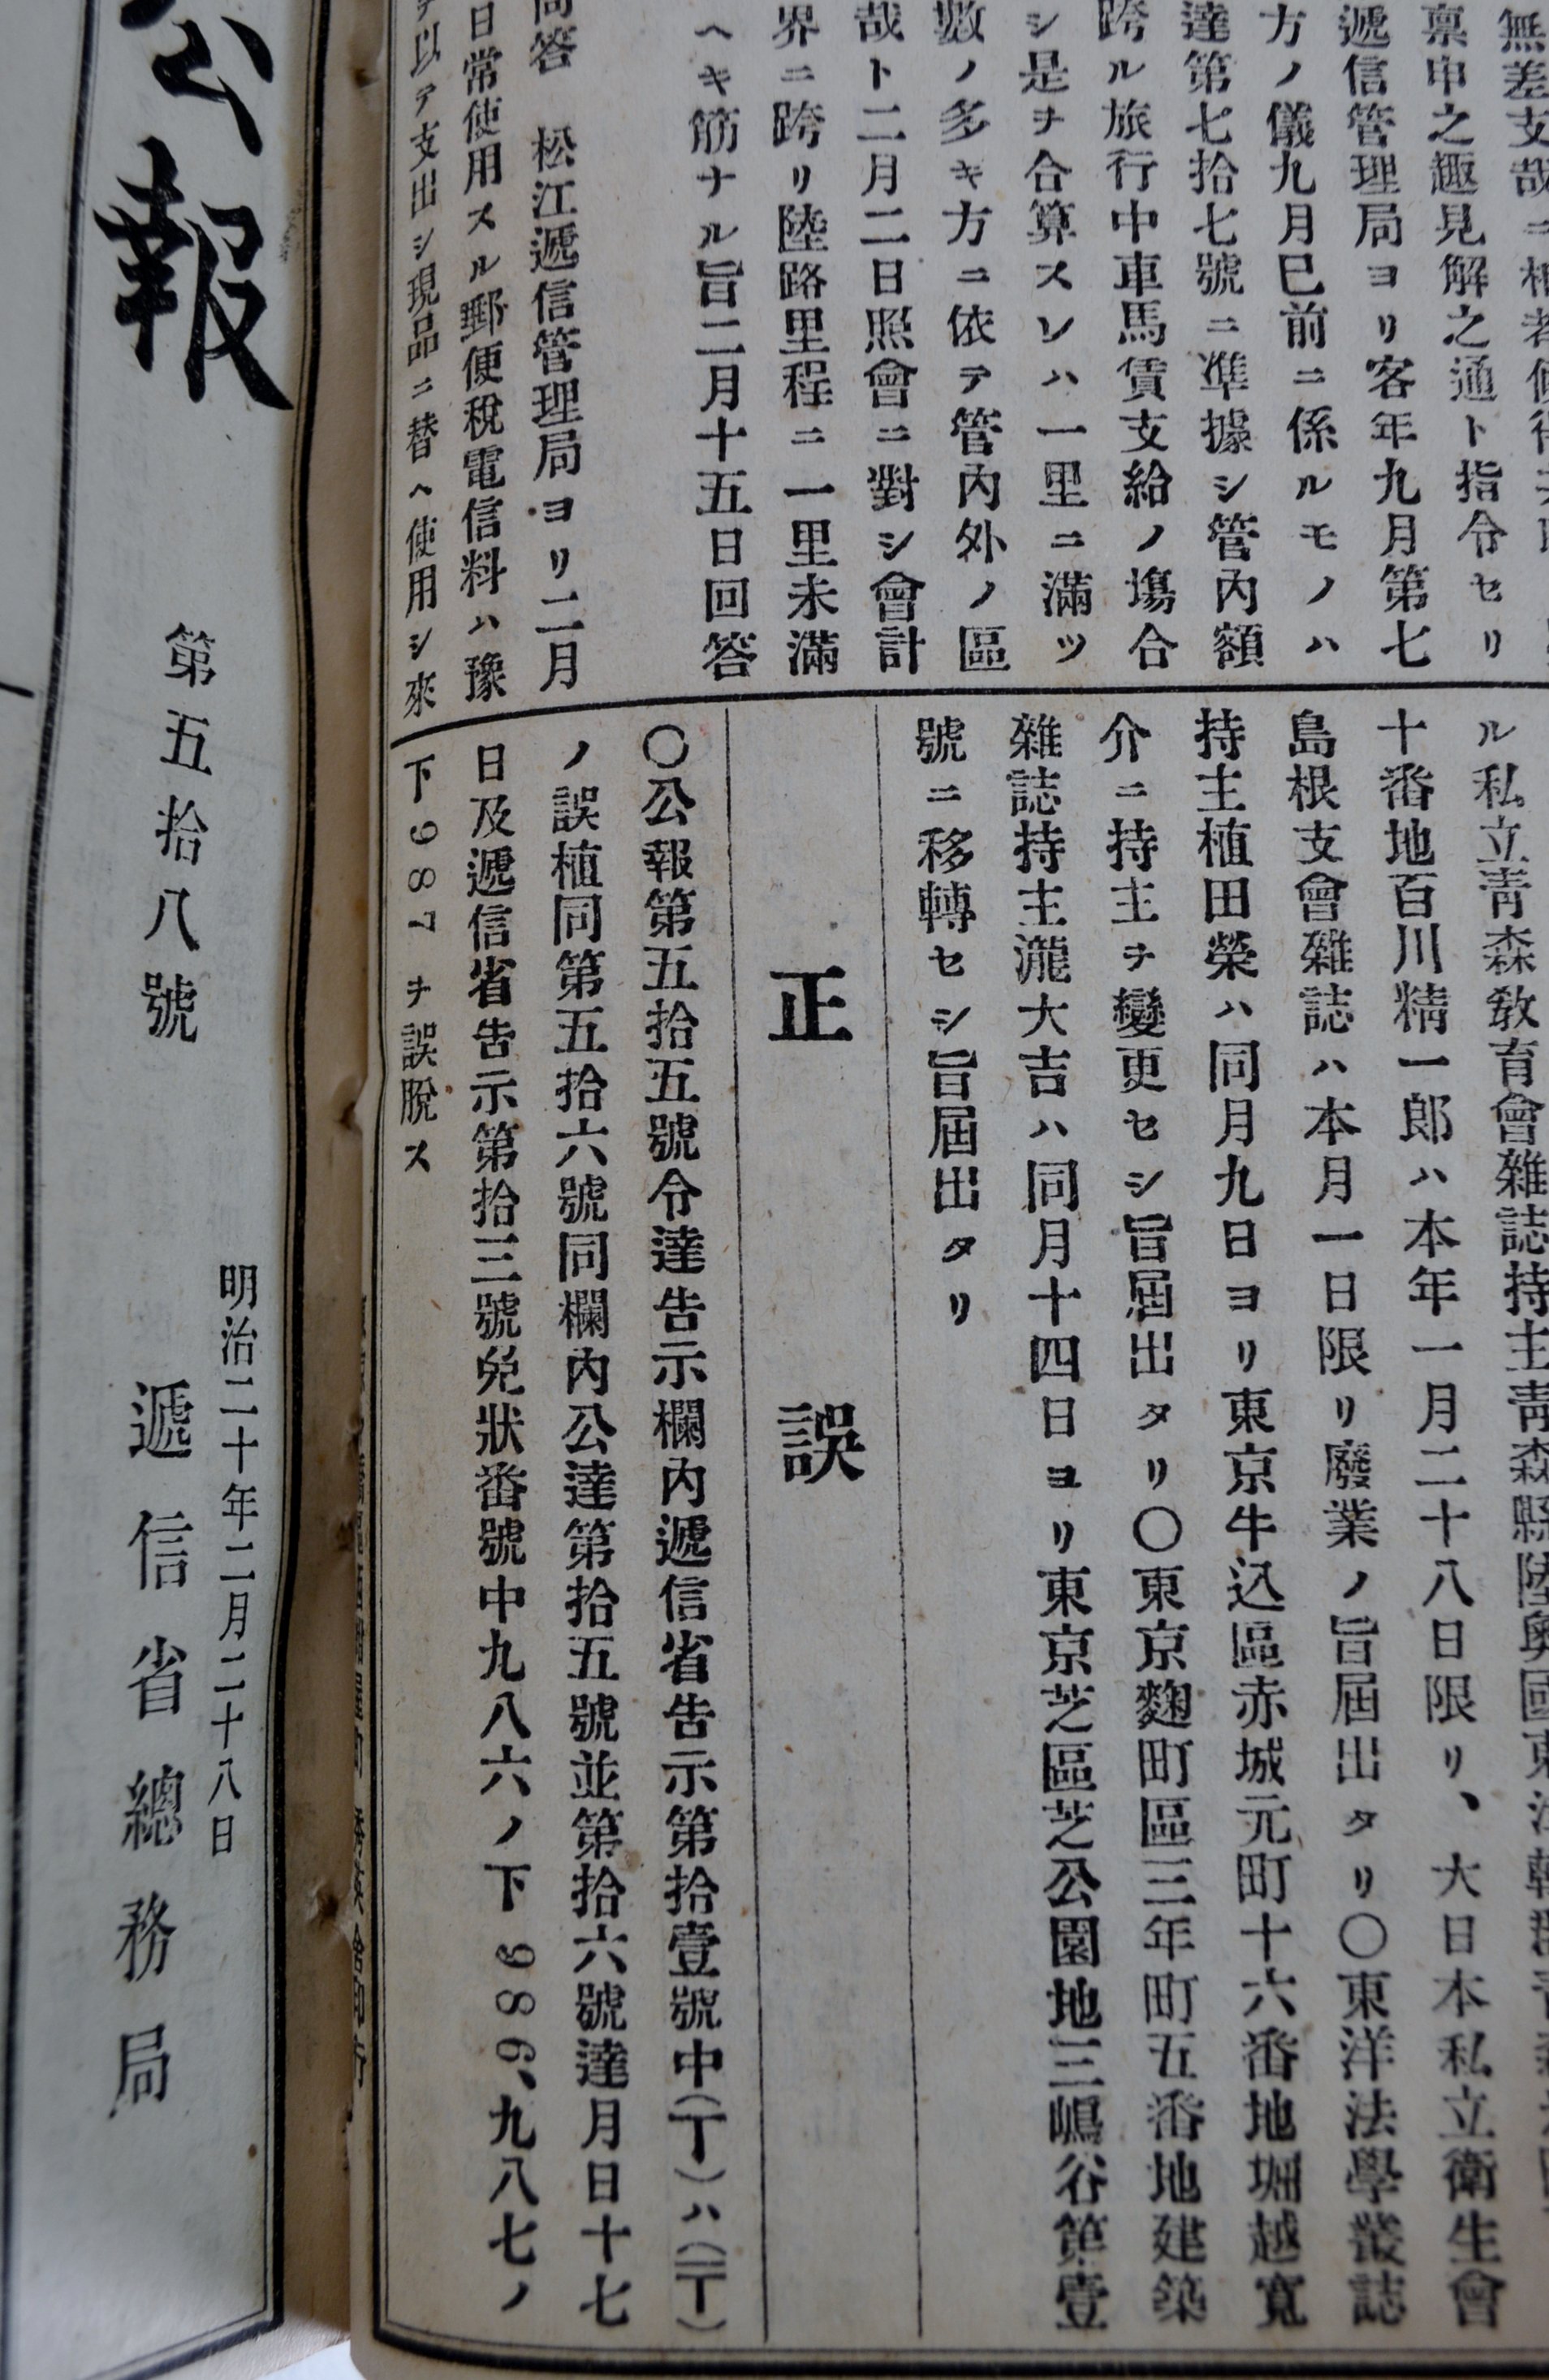 無差支哉ニ
稟申之趣見解之通ト指令セリ
遞信管理局ヨリ客年九月第七
方ノ儀九月已前ニ係ルモノハ
達第七拾七號ニ準據シ管內額
跨ル旅行中車馬賃支給ノ塲合
シ是ヲ合算スレハ一里ニ滿ツ
數ノ多キ方ニ依テ管內外ノ區
哉ト二月二日照會ニ對シ會計
界ニ跨リ陸路里程ニ一里未滿
ヘキ筋ナル旨二月十五日回答
問答 松江遞信管理局ヨリ二月
日常使用スル郵便稅電信料ハ豫
以テ支出シ現品ニ替ヘ使用シ來
ル私立靑森敎育會雜誌持主靑森縣陸奧國東
十番地百川精一郎ハ本年一月二十八日限リ、大日本私立衛生會
島根支會雜誌ハ本月一日限リ廢業ノ旨屆出タリ〇東洋法學叢誌
持主植田榮ハ同月九日ヨリ東京牛込區赤城元町十六番地堀越寬
介ニ持主ヲ變更セシ旨屆出タリ〇東京麴町區三年町五番地建築
雜誌持主瀧大吉ハ同月十四日ヨリ東京芝區芝公園地三嶋谷第壹
號ニ移轉セシ旨屆出タリ
正誤
〇公報第五拾五號令達告示欄內遞信省告示第拾壹號中(丁)ハ(二丁)
ノ誤植同第五拾六號同欄內公達第拾五號並第拾六號達月日十七
日及遞信省告示第拾三號免狀番號中九八六ノ下986、九八七ノ
下987ヲ誤脫ス
公報
第五拾八號
明治二十年二月二十八日
遞信省總務局